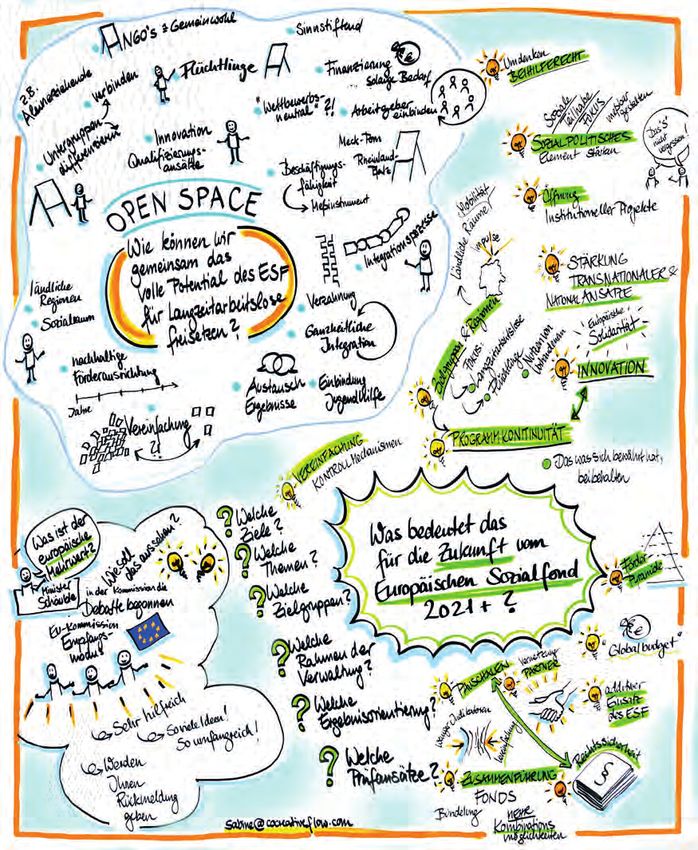 NGO's = Gemeinwohl
Sinnstiftend
z.B.
Alleinerziehende
verbinden
Flüchtlinge
Finanzierung
solange Bedarf
Untergruppen
differenzieren
Innovation
Qualifizierungs-
ansätze
"Wettbewerbs-
neutral" ?!
Arbeitgeber
einbinden
Meck-Pom
Rheinland-
Pfalz
Beschäftigungs-
fähigkeit
Meßinstrument
OPEN SPACE
Wie können wir
gemeinsam das
volle Potential des ESF
für Langzeitarbeitslose
freisetzen?
Integrationsprozesse
ländliche
Regionen
Sozialraum
Verzahnung
Ganzheitliche
Integration
nachhaltige
Förderausrichtung
Jahre
Vereinfachung
?!
Austausch
Ergebnisse
Einbindung
Jugendhilfe
Umdenken
BEIHILFERECHT
Soziale
Teilhabe
FOKUS
SOZIALPOLITISCHES
Element stärken
"Das 'S'
nicht
vergessen!"
Öffnung
Institutioneller Projekte
STÄRKUNG
TRANSNATIONALER &
NATIONALANSÄTZE
Europäische
Solidarität
INNOVATION
Ländliche Räume
Impulse
Zielgruppen & Regionen
FOKUS:
Langzeitarbeitslose
Flüchtlinge
PROGRAMMKONTINUITÄT
Das was sich bewährt hat,
beibehalten
VEREINFACHUNG
KONTROLLMechanismen
Was bedeutet das
für die Zukunft vom
Europäischen Sozialfond
2021+?
? Welche
Ziele?
? Welche
Themen?
? Welche
Zielgruppen?
? Welche
Rahmen der
Verwaltung?
? Welche
Ergebnisorientierung?
? Welche
Prüfansätze?
Was ist der
europäische
Mehrwert?
Minister
Schäuble
Wie soll
das aussehen?
in der Kommission die
Debatte begonnen
EU-Kommission
Empfangs-
modus
Sehr hilfreich
So viele Ideen!
So umfangreich!
Werden
Ihnen
Rückmeldung
geben
Förder
Pyramide
"Globalbudget"
additiver
Einsatz
des ESF
PAUSCHALEN
PARTNER
Weniger Indikatoren
Vereinfachung
Rechtssicherheit
§
ZUSAMMENFÜHRUNG
FONDS
Bündelung
MEHR
Kombinations
möglichkeiten
sabine@cocreativeflow.com